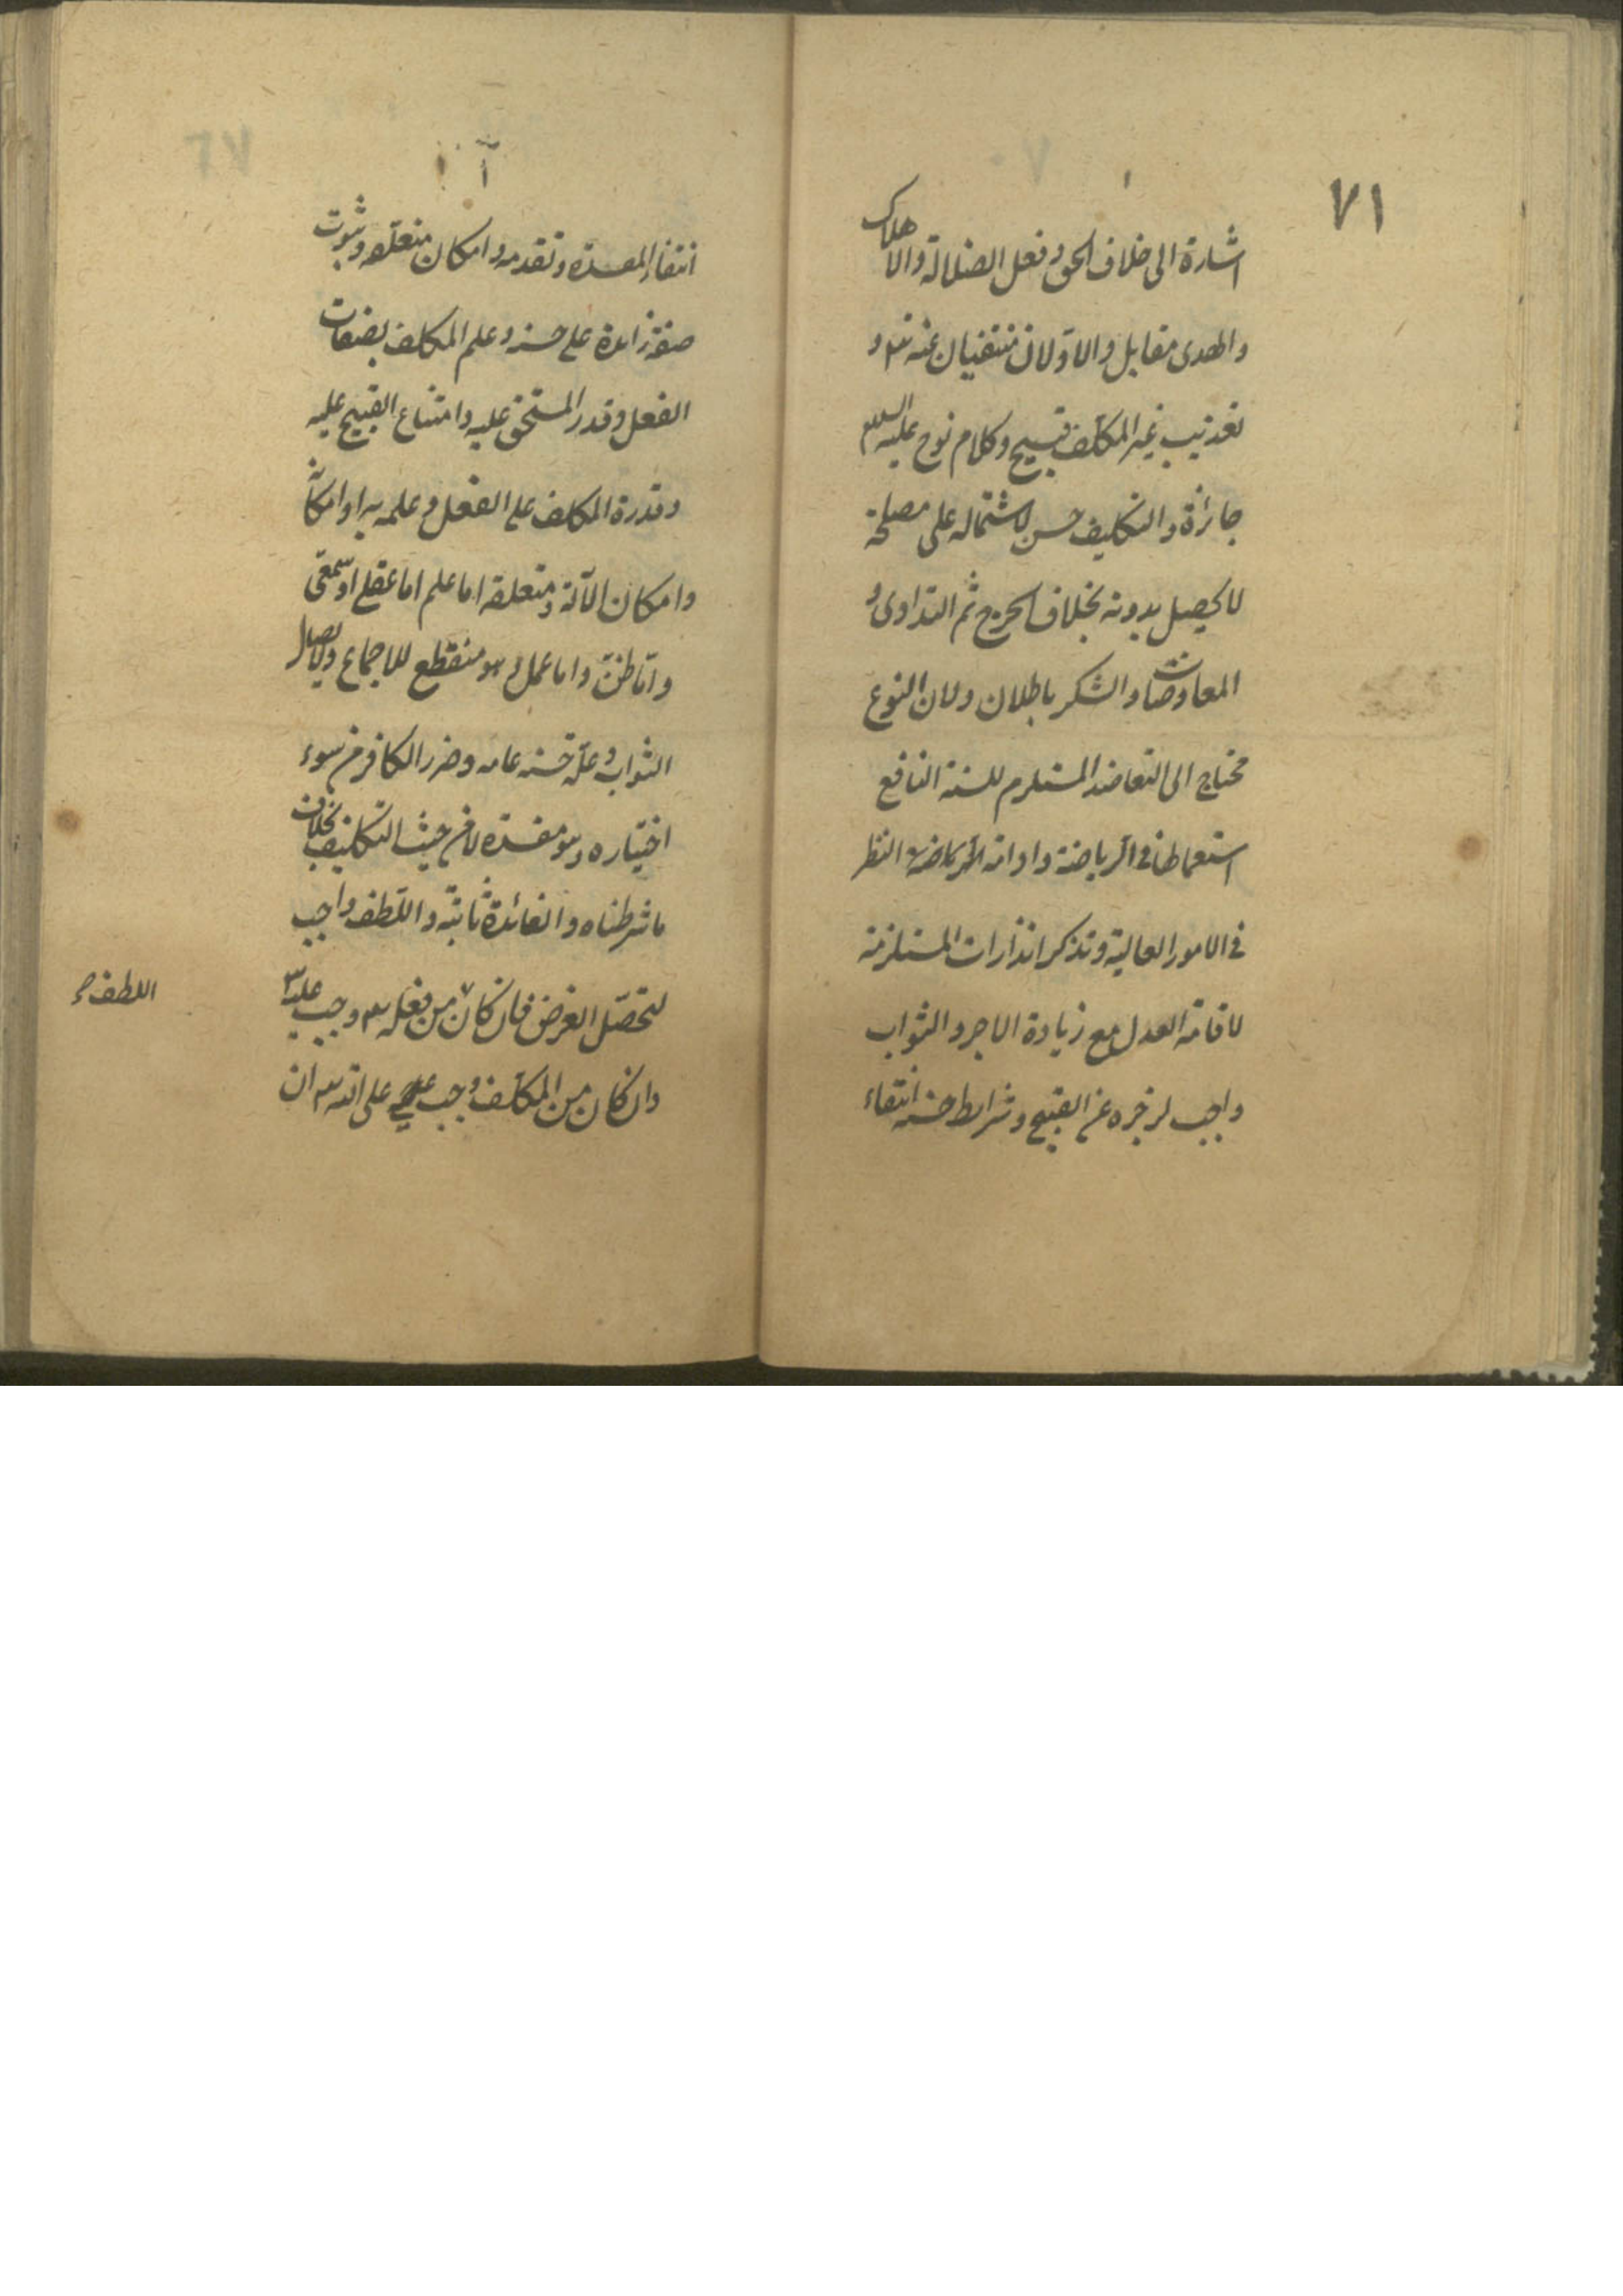 ٧١
اشارة الى خلاف الحق وفعل الضلالة والاهلاك
والهدى مقابل والاوّلان منتفيان عنه تعـ و
تعذيب غير المكلّف قبيح وكلام نوح عليه السلم
جائزة والتكليف حسن لاشتماله على مصلحة
لا يحصل بدونه بخلاف الجرح ثم التداوى و
المعاوضات والشكر باطلان ولان النوع
محتاج الى التعاضد المستلزم للسنة النافع
استعمالها فى الرياضة وادامة النظر
فى الامور العالية وتذكر انذارات المستلزمة
لاقامة العدل مع زيادة الاجر والثواب
واجب لزجره عن القبيح وشرايط حسنه انتفاء
انتفاء المفسدة وتقدمه وامكان متعلّقه وثبوت
صفة زائدة على حسنه وعلم المكلف بصفات
الفعل وقدر المستحق عليه وامتناع القبيح عليه
وقدرة المكلف على الفعل وعلمه به او امكانه
وامكان الآلة ومتعلقه اما علم اما عقلى او سمعى
وامّا ظنّ واما عمل وهو منقطع للاجماع ولايصال
الثواب وعلّة حسنه عامه وضرر الكافر من سوء
اختياره وهو مفسدة لا من حيث التكليف بخلاف
ما شرطناه والفائدة ثابتة واللّطف واجب
لتحصّل الغرض فان كان من فعله تعـ وجب عليه
وان كان من المكلّف وجب على الله تعـ ان
اللطف